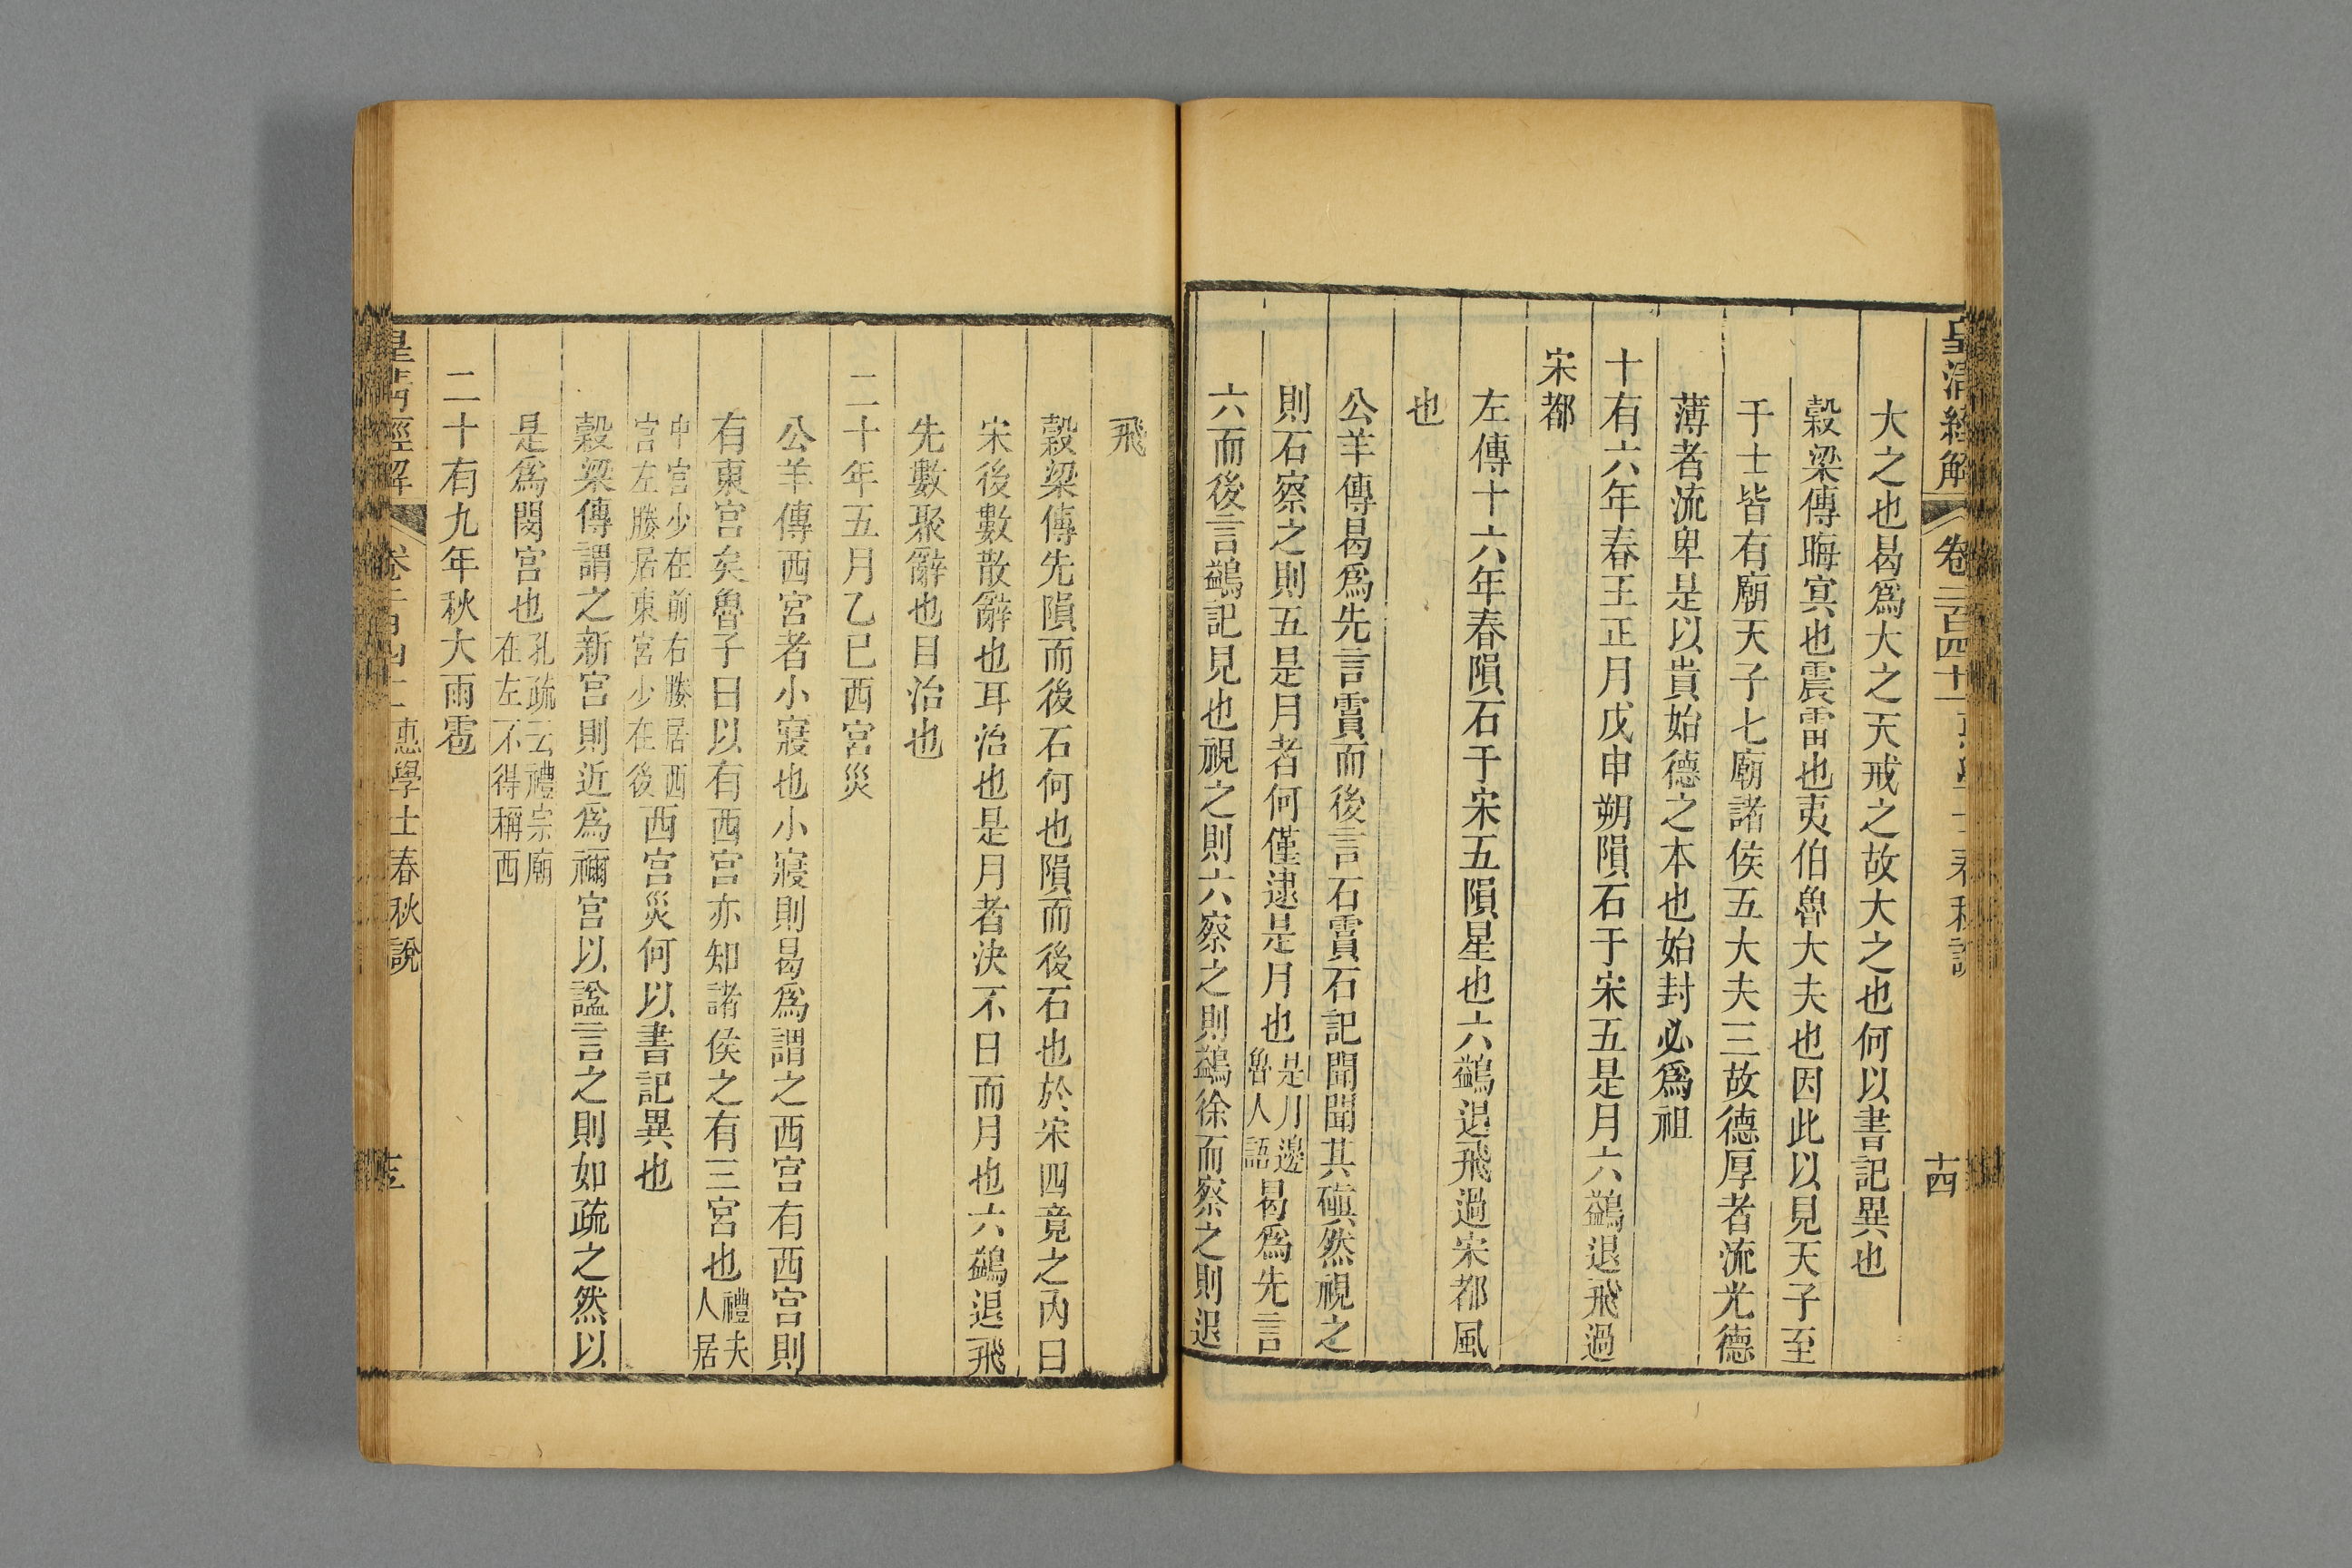 皇清經解 卷二百四十 春秋說 十四
大之也曷爲大之天戒之故大之也何以書記異也
穀梁傳晦冥也震雷也夷伯魯大夫也因此以見天子至
于士皆有廟天子七廟諸侯五大夫三故德厚者流光德
薄者流卑是以貴始德之本也始封必爲祖
十有六年春王正月戊申朔隕石于宋五是月六鷁退飛過
宋都
左傳十六年春隕石于宋五隕星也六鷁退飛過宋都風
也
公羊傳曷爲先言霣而後言石霣石記聞聞其磌然視之
則石察之則五是月者何僅逮是月也是月邊魯人語曷爲先言
六而後言鷁記見也視之則六察之則鷁徐而察之則退
飛
穀梁傳先隕而後石何也隕而後石也於宋四竟之內曰
宋後數散辭也耳治也是月者決不日而月也六鷁退飛
先數聚辭也目治也
二十年五月乙巳西宮災
公羊傳西宮者小寢也小寢則曷爲謂之西宮有西宮則
有東宮矣魯子曰以有西宮亦知諸侯之有三宮也禮夫人居
中宮少在前右媵居西宮左媵居東宮少在後西宮災何以書記異也
穀梁傳謂之新宮則近爲禰宮以謚言之則如疏之然以
是爲閔宮也孔疏云禮宗廟在左不得稱西
二十有九年秋大雨雹
經解 惠學士春秋說